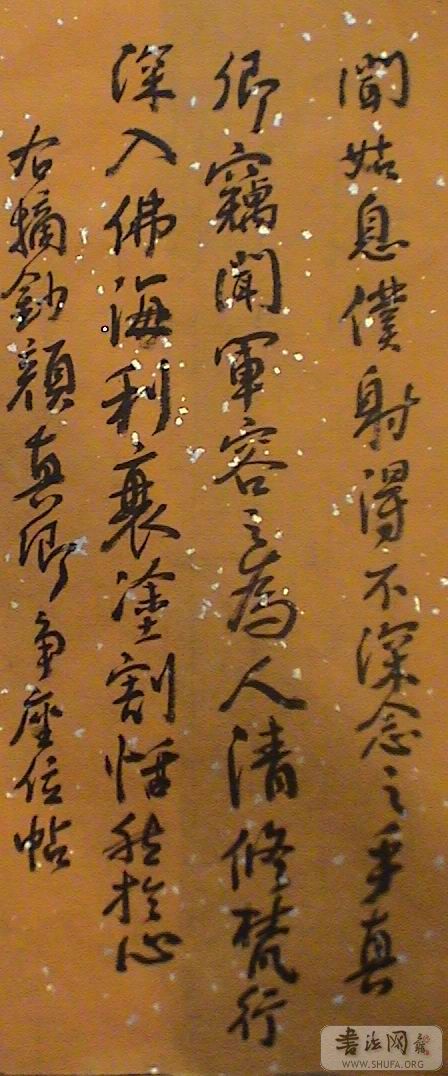 聞姑息僕射得不深念之乎真
卿竊聞軍容之為人清修梵行
深入佛海利衰塗割恬然於心
右摘鈔顏真卿争座位帖
書法网
WWW.SHUFA.ORG